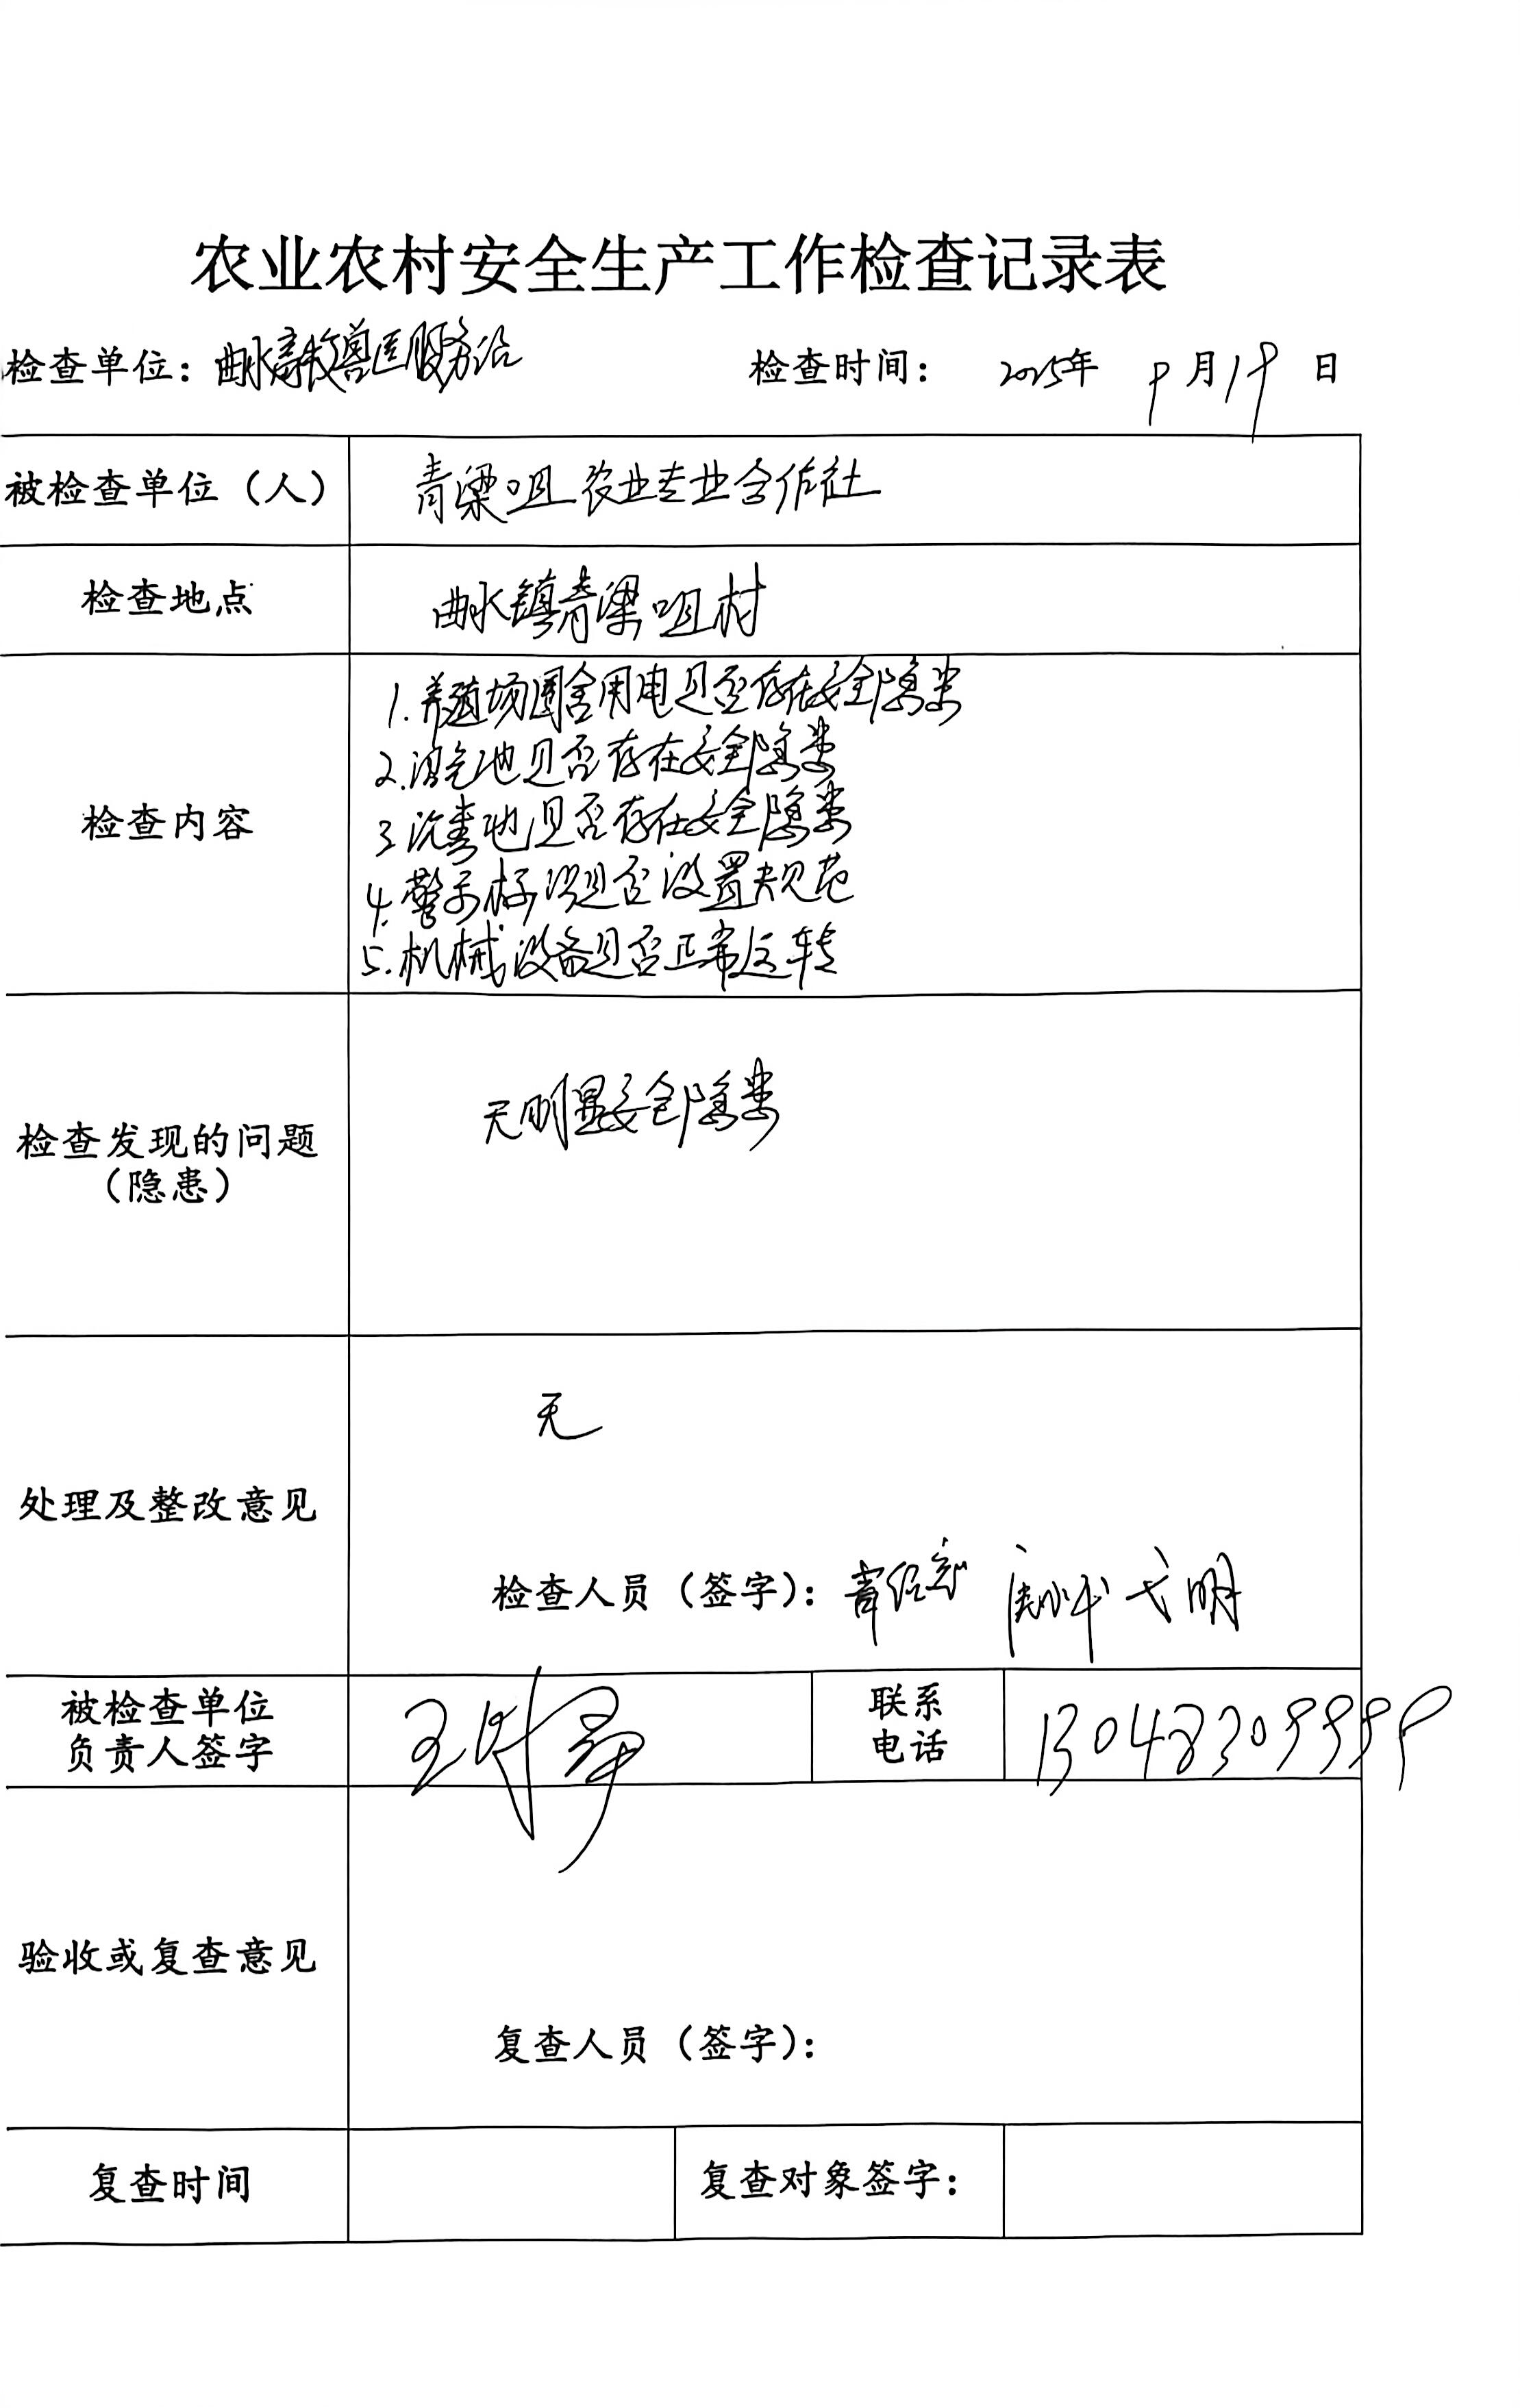 农业农村安全生产工作检查记录表
检查单位：曲水畜牧兽医服务站 检查时间： 2025年 9月19日
被检查单位（人） 青梁咀农业专业合作社
检查地点 曲水镇青梁咀村
检查内容
1.养殖场圈舍用电是否存在安全隐患
2.沼气池是否存在安全隐患
3.沉粪池是否存在安全隐患
4.警示标识是否设置规范
5.机械设备是否正常运转
检查发现的问题
（隐患）
无明显安全隐患
处理及整改意见
无
检查人员（签字）：
被检查单位
负责人签字
联系
电话
验收或复查意见
复查人员（签字）：
复查时间 复查对象签字：